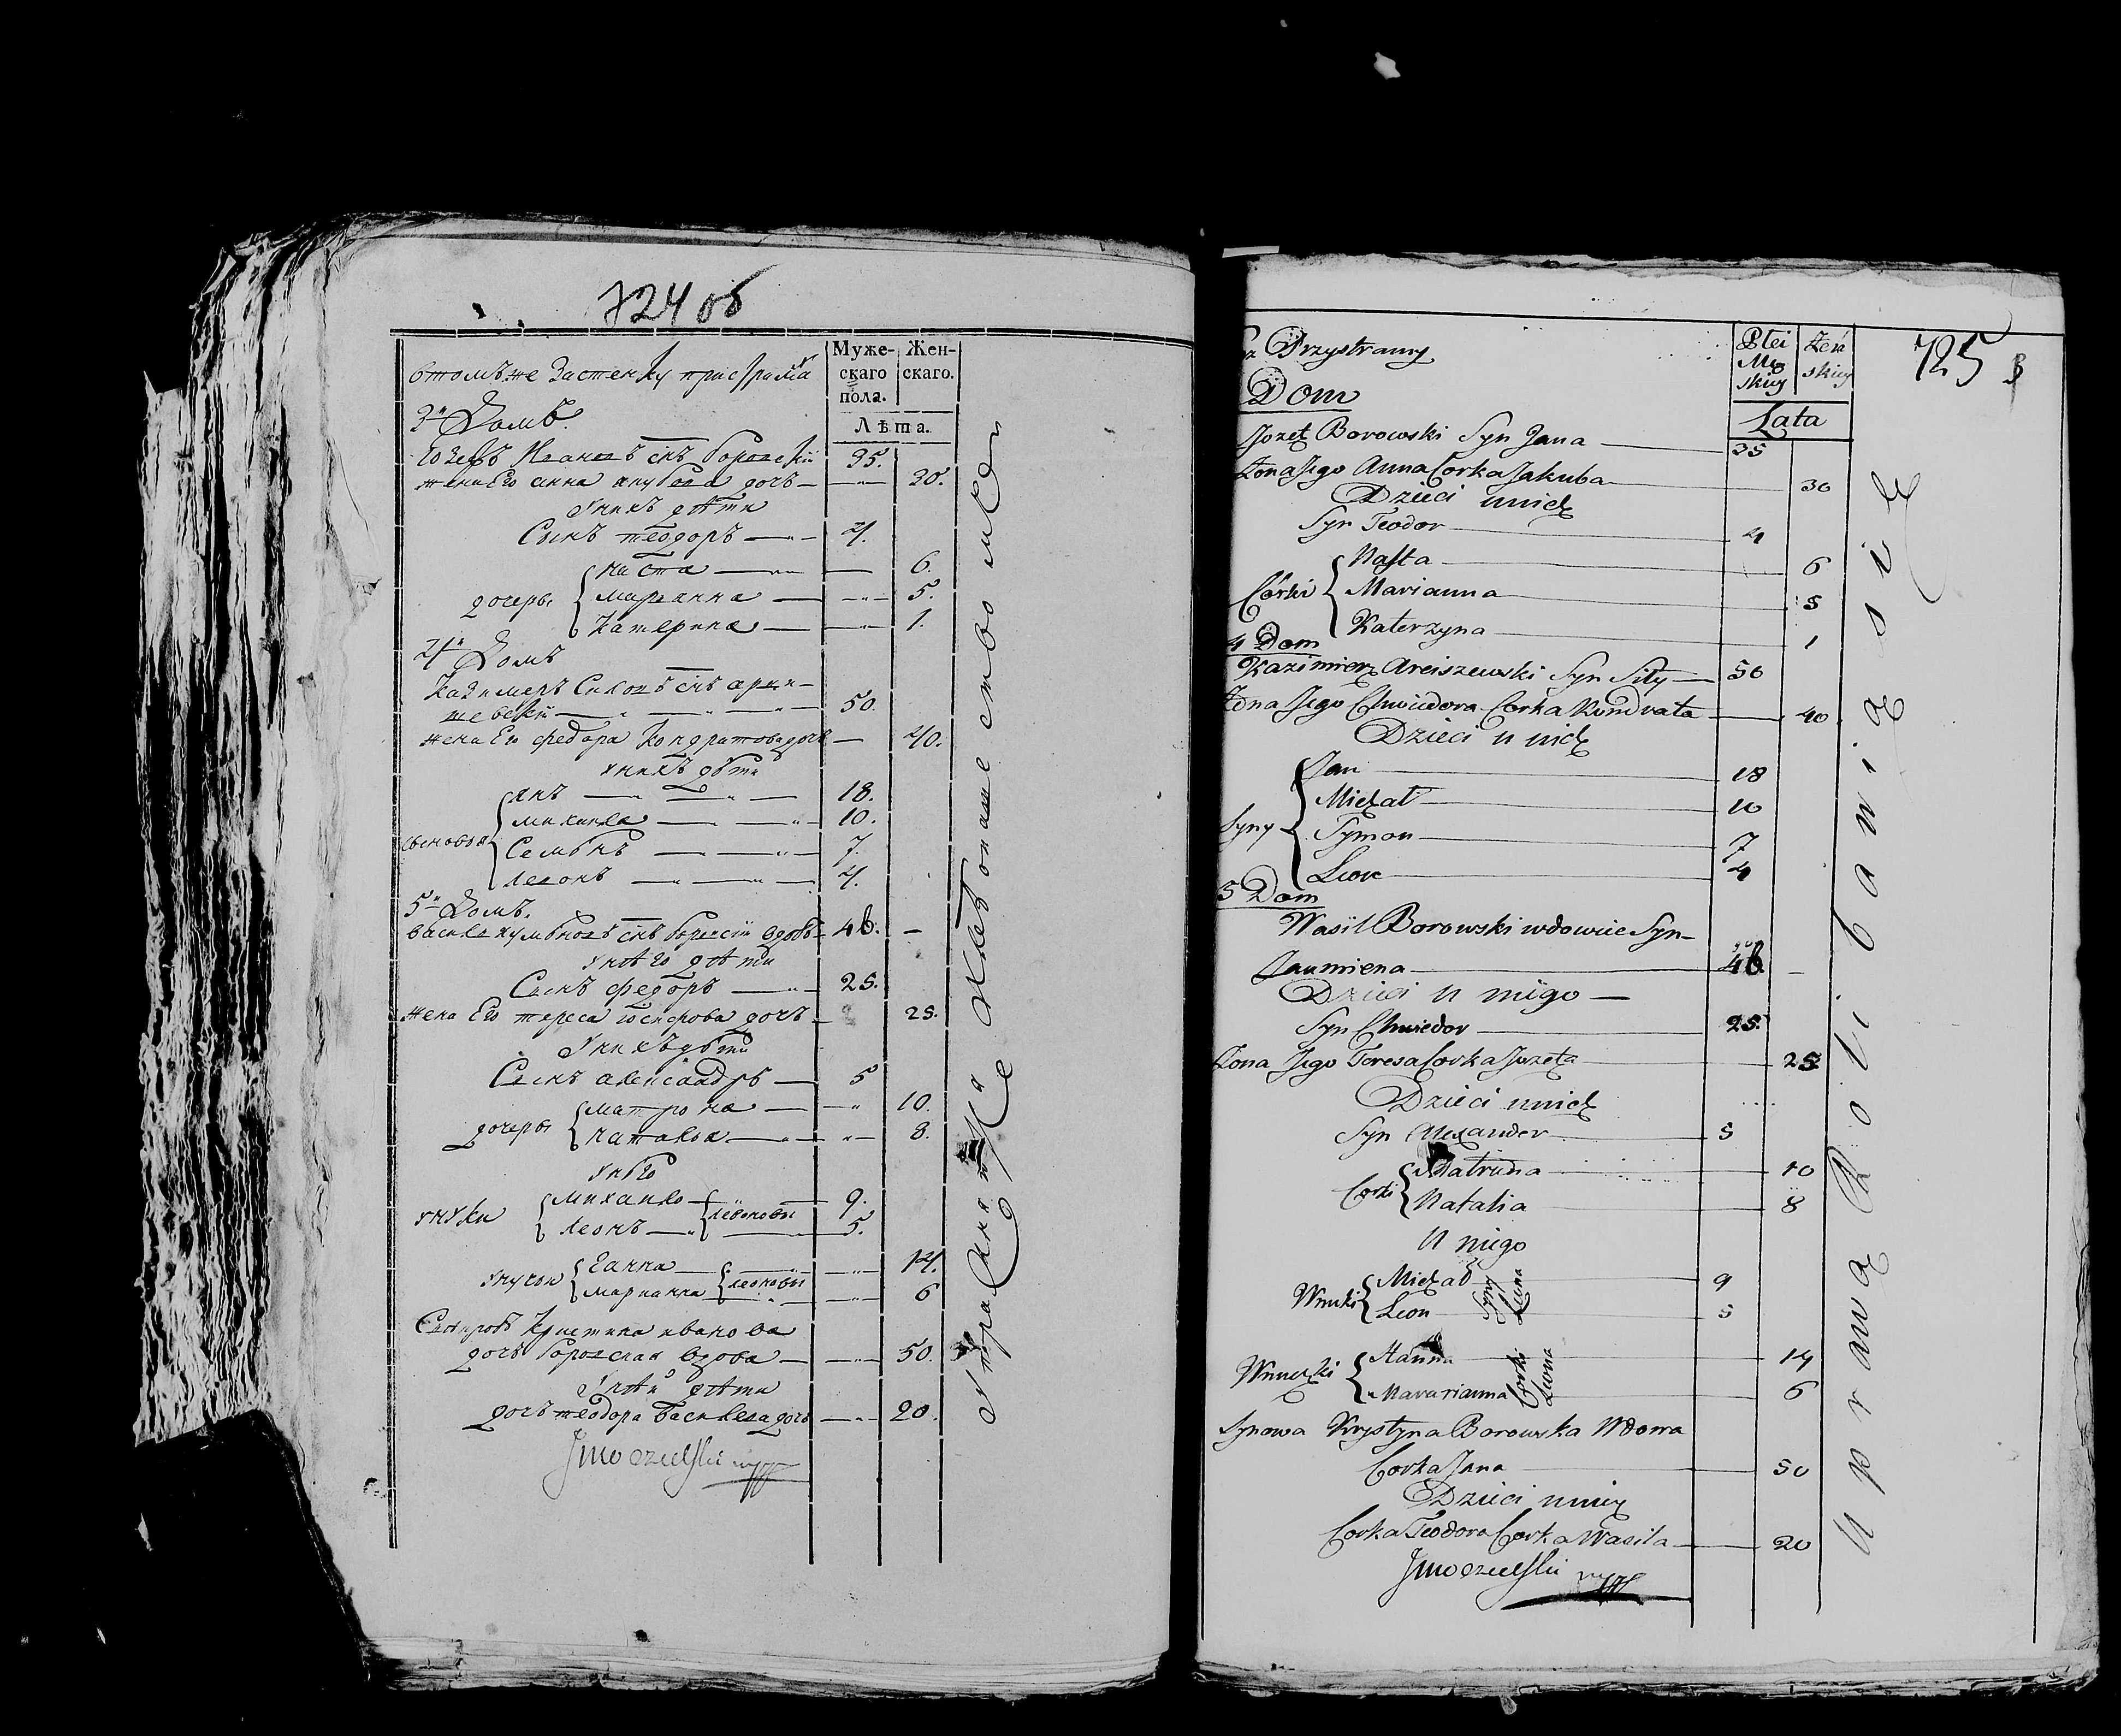 724 об
Муже-
скаго
пола.
Жен-
скаго.
Лѣта.
втомъже застенку пристрамы
3й Домъ.
Юзефъ Ивановъ снъ Боровскiй 35.
жена Его анна якубова дочь 30.
Унихъ дѣти
Сынъ теодоръ 4.
дочеры
наста 6.
марьянна 5.
Катерина 1.
4й Домъ
Казимеръ Силовъ снъ арци-
шевскiй 50.
жена Его федора Кондратова дочь 40.
унихъ дѣти
сыновья
янъ 18.
михайла 10.
Семѣнъ 7.
леонъ 4.
5й Домъ.
василь снъ боровскiй вдовъ 46.
унѣго дѣти
Сынъ федоръ 25.
жена Его тереса юсифова дочь 25.
Унихъ дѣти
Сынъ александръ 5
дочеры
матрона 10.
наталья 8.
унѣго
унуки
михайло 9.
леонъ 5.
леоновы
унучки
Ганна 14.
марианна 6
леоновы
Кристина иванова
дочь боровская вдова 50.
унѣй дѣти
дочь теодора Васильева дочь 20.
725
Płci
Mę
skiey
Żeń
skiey
Lata
Przystramy
Dom
Jozef Borowski Syn Jana 35
Zona Jego Anna Corka Jakuba 30
Dzieci unich
Syn Teodor 4
Córki
Nasta 6
Marianna 5
Katerzyna 1
4 Dom
Kazimierz Arciszewski Syn Siły 50
Zona Jego Chwiedora Corka Kondrata 40
Dzieci u nich
Syny
Jan 18
Michał 10
Symon 7
Leon 4
5 Dom
Wasil Borowski wdowiec Syn
46
Dzieci u niego
Syn Chwiedor 25.
Zona Jego Teresa Corka Jozefa 25
Dzieci unich
Syn Alexander 5
Corki
Matruna 10
Natalia 8
U niego
Wnuki
Michał 9
Leon 5
Syny
Leona
Wnuczki
Hanna 14
Mararianna 6
Corki
Leona
Synowa Krystyna Borowska Wdowa
Corka Jana 50
Dzieci uniey
Corka Teodora Corka Wasila 20
Uprawą Roli bawią się